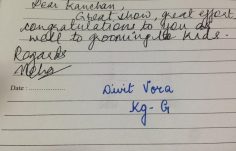 Dear Kanchan,
Great show, great effort
congratulations to you as
well to grooming the kids.
Regards
Neha
Date :
Divit Vora
Kg- G